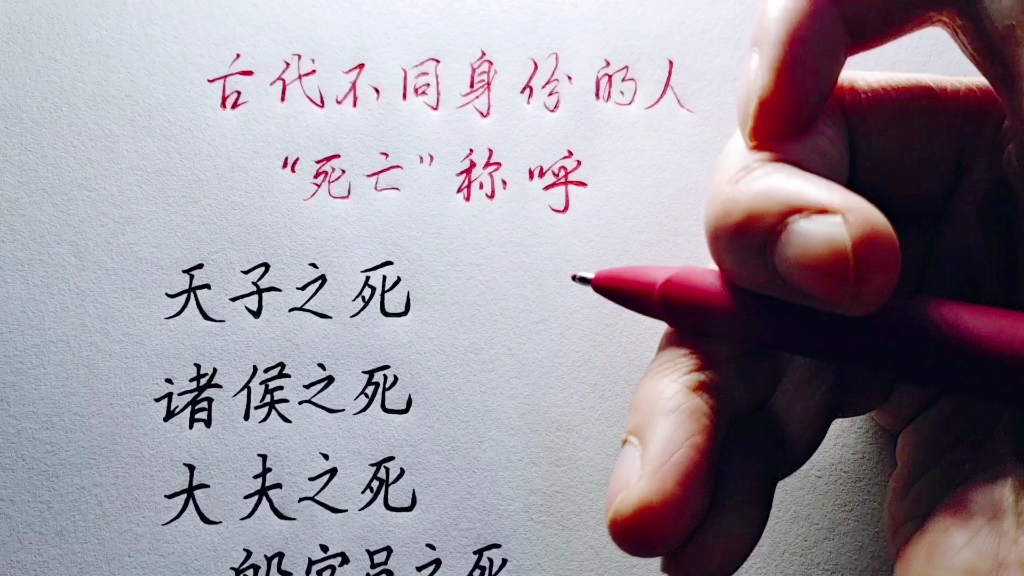 古代不同身份的人
“死亡”称呼
天子之死
诸侯之死
大夫之死
般官员之死